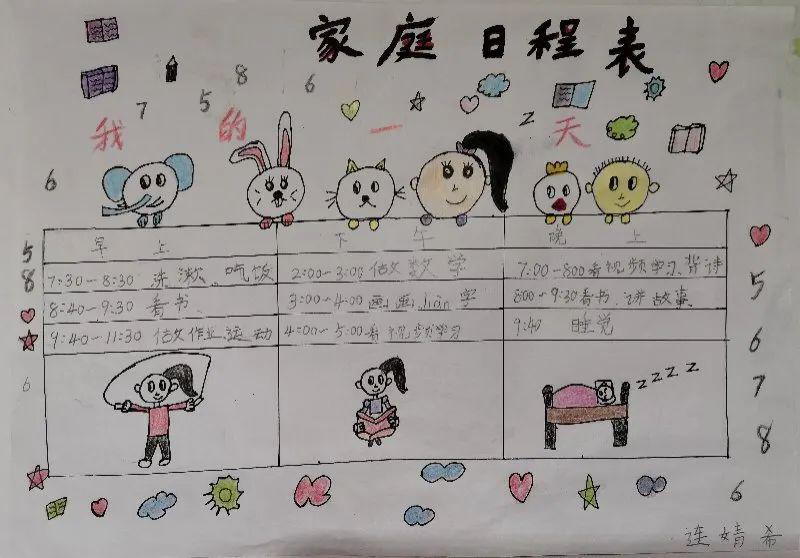 家庭日程表
8 6
7 5
我的一天
z
6
5
早上 下午 晚上
8
7:30-8:30 洗漱、吃饭 2:00-3:00 做数学 7:00-800看视频学习、背诗
8:40-9:30 看书 3:00-4:00画画、liàn字 800-9:30看书、讲故事
5
9:40-11:30 做作业、运动 4:00-5:00看视频学习 9:40 睡觉
6
6
zzzz
7
8
6
连婧希